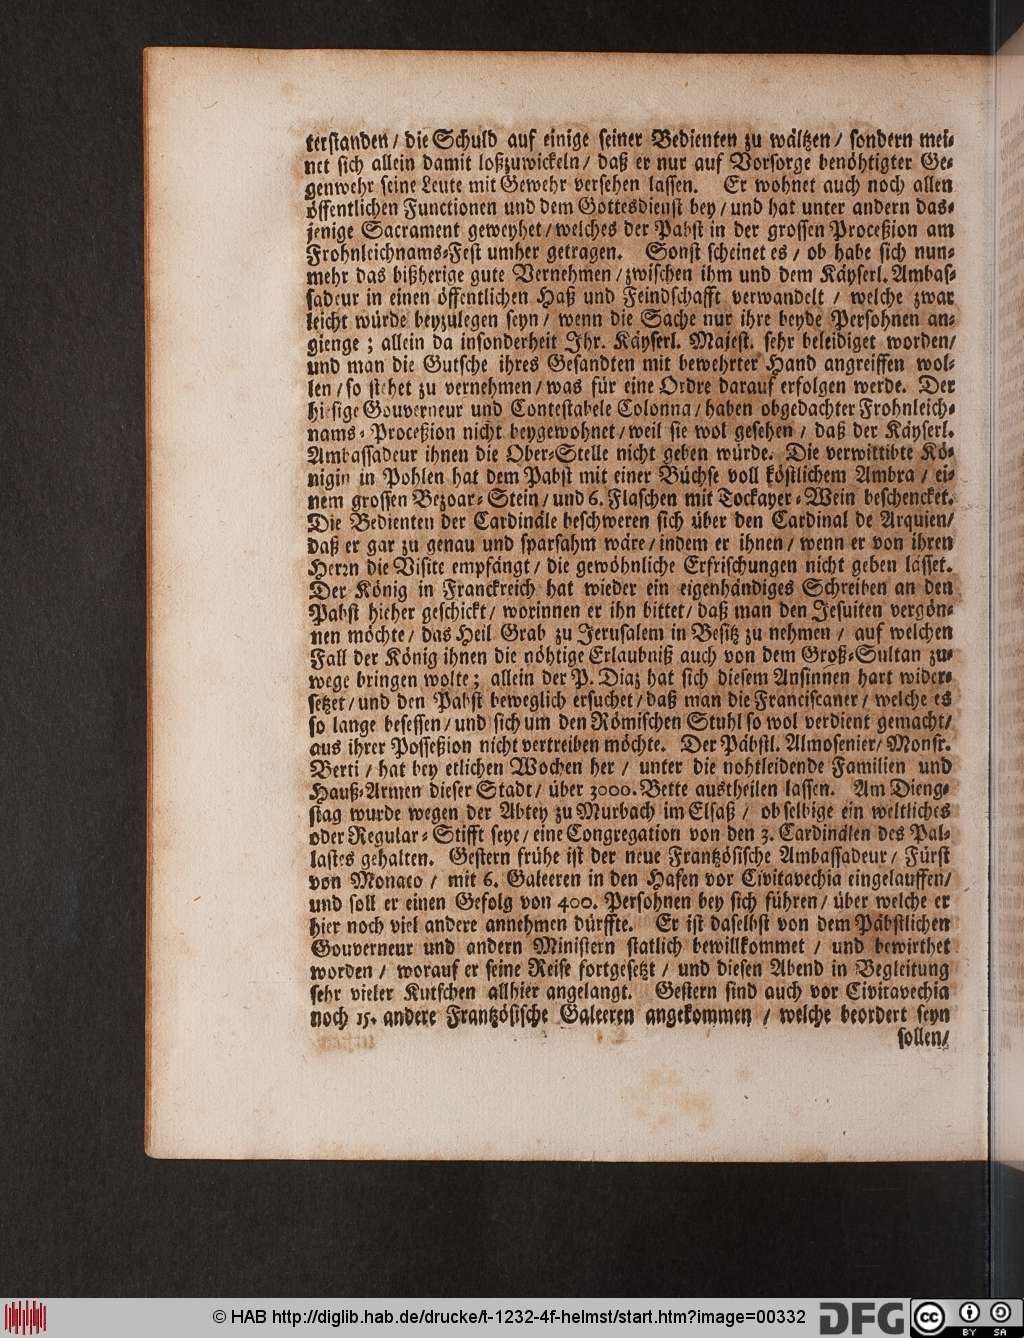 terstanden / die Schuld auf einige seiner Bedienten zu wältzen / sondern mei-
net sich allein damit loßzuwickeln / daß er nur auf Vorsorge benöhtigter Ge-
genwehr seine Leute mit Gewehr versehen lassen. Er wohnet auch noch allen
öffentlichen Functionen und dem Gottesdienst bey / und hat unter andern das-
jenige Sacrament geweyhet / welches der Pabst in der grossen Proceßion am
Frohnleichnams-Fest umher getragen. Sonst scheinet es / ob habe sich nun-
mehr das bißherige gute Vernehmen / zwischen ihm und dem Käyserl. Ambas-
sadeur in einen öffentlichen Haß und Feindschafft verwandelt / welche zwar
leicht würde beyzulegen seyn / wenn die Sache nur ihre beyde Persohnen an-
gienge ; allein da insonderheit Ihr. Käyserl. Majest. sehr beleidiget worden/
und man die Gutsche ihres Gesandten mit bewehrter Hand angreiffen wol-
len / so stehet zu vernehmen / was für eine Ordre darauf erfolgen werde. Der
hiesige Gouverneur und Contestabele Colonna / haben obgedachter Frohnleich-
nams-Proceßion nicht beygewohnet / weil sie wol gesehen / daß der Käyserl.
Ambassadeur ihnen die Ober-Stelle nicht geben würde. Die verwittibte Kö-
nigin in Pohlen hat dem Pabst mit einer Büchse voll köstlichem Ambra / ei-
nem grossen Bezoar-Stein / und 6. Flaschen mit Tockayer-Wein beschencket.
Die Bedienten der Cardinäle beschweren sich über den Cardinal de Arquien/
daß er gar zu genau und sparsahm wäre / indem er ihnen / wenn er von ihren
Herrn die Visite empfängt / die gewöhnliche Erfrischungen nicht geben lässet.
Der König in Franckreich hat wieder ein eigenhändiges Schreiben an den
Pabst hieher geschickt / worinnen er ihn bittet / daß man den Jesuiten vergön-
nen möchte / das Heil Grab zu Jerusalem in Besitz zu nehmen / auf welchen
Fall der König ihnen die nöhtige Erlaubniß auch von dem Groß-Sultan zu-
wege bringen wolte ; allein der P. Diaz hat sich diesem Ansinnen hart wider-
setzet / und den Pabst beweglich ersuchet / daß man die Franciscaner / welche es
so lange besessen / und sich um den Römischen Stuhl so wol verdient gemacht/
aus ihrer Posseßion nicht vertreiben möchte. Der Päbstl. Almosenier / Monsr.
Berti / hat bey etlichen Wochen her / unter die nohtleidende Familien und
Hauß-Armen dieser Stadt / über 3000. Bette austheilen lassen. Am Dieng-
stag wurde wegen der Abtey zu Murbach im Elsaß / ob selbige ein weltliches
oder Regular-Stifft seye / eine Congregation von den 3. Cardinälen des Pal-
lastes gehalten. Gestern frühe ist der neue Frantzösische Ambassadeur / Fürst
von Monaco / mit 6. Galeeren in den Hafen vor Civitavechia eingelauffen/
und soll er einen Gefolg von 400. Persohnen bey sich führen / über welche er
hier noch viel andere annehmen dürffte. Er ist daselbst von dem Päbstlichen
Gouverneur und andern Ministern statlich bewillkommet / und bewirthet
worden / worauf er seine Reise fortgesetzt / und diesen Abend in Begleitung
sehr vieler Kutschen allhier angelangt. Gestern sind auch vor Civitavechia
noch 15. andere Frantzösische Galeeren angekommen / welche beordert seyn
sollen/
© HAB http://diglib.hab.de/drucke/t-1232-4f-helmst/start.htm?image=00332
DFG
cc BY SA